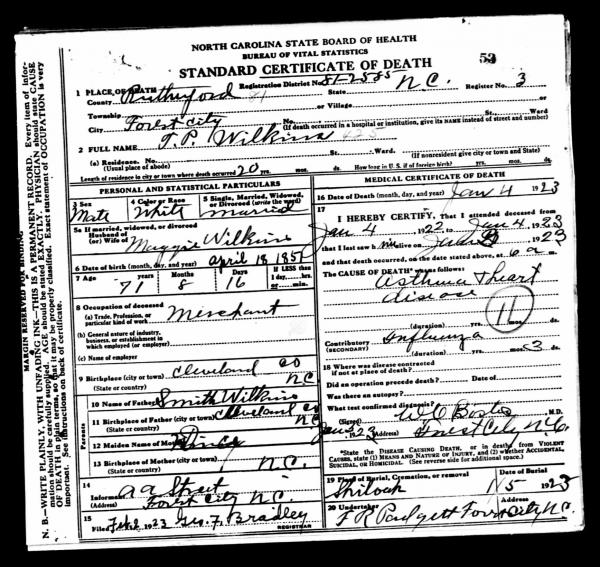 NORTH CAROLINA STATE BOARD OF HEALTH
BUREAU OF VITAL STATISTICS
STANDARD CERTIFICATE OF DEATH
53
1 PLACE OF DEATH Registration District No. 81-2585 State N.C. Register No. 3
County Rutherford
Township or Village
City Forest City No. St., Ward
(If death occurred in a hospital or institution, give its NAME instead of street and number)
2 FULL NAME T. P. Wilkins
(a) Residence. No. St., Ward.
(Usual place of abode) (If nonresident give city or town and State)
Length of residence in city or town where death occurred 20 yrs. mos. ds. How long in U. S. if of foreign birth? yrs. mos. ds.
PERSONAL AND STATISTICAL PARTICULARS
3 Sex 4 Color or Race 5 Single, Married, Widowed, or Divorced (write the word)
Male White Married
5a If married, widowed, or divorced
Husband of
(or) Wife of Maggie Wilkins
6 Date of birth (month, day, and year) April 18 1851
7 Age Years Months Days If LESS than
1 day, hrs.
or min.
71 8 16
8 Occupation of deceased
(a) Trade, Profession, or
particular kind of work Merchant
(b) General nature of industry,
business, or establishment in
which employed (or employer)
(c) Name of employer
9 Birthplace (city or town) Cleveland Co
(State or country) NC
Parents
10 Name of Father Smith Wilkins
11 Birthplace of Father (city or town) Cleveland Co
(State or country) NC
12 Maiden Name of Mother
13 Birthplace of Mother (city or town)
(State or country) N.C.
14
Informant
(Address) Forest City N.C.
15
Filed Feb 2 1923 Geo. F. Bradley
REGISTRAR
MEDICAL CERTIFICATE OF DEATH
16 Date of Death (month, day, and year) Jan 4 1923
17
I HEREBY CERTIFY, That I attended deceased from
Jan 4 1922 to Jan 4 1923
that I last saw him alive on Jan 1923
and that death occurred, on the date stated above, at 6 a m.
The CAUSE OF DEATH* was as follows:
Asthma & heart
disease
11
(duration) yrs. mos. ds.
Contributory Influenza
(SECONDARY)
(duration) yrs. mos. 3 ds.
18 Where was disease contracted
if not at place of death?
Did an operation precede death? Date of
Was there an autopsy?
What test confirmed diagnosis?
(Signed) W. C. Bostic M.D.
1923 (Address) Forest City N.C.
*State the DISEASE CAUSING DEATH, or in deaths from VIOLENT
CAUSES, state (1) MEANS AND NATURE OF INJURY, and (2) whether ACCIDENTAL,
SUICIDAL, or HOMICIDAL. (See reverse side for additional space.)
19 Place of Burial, Cremation, or removal Date of Burial
Shilock 1/5 1923
20 Undertaker Address
F R Padgett Forest City N.C.
MARGIN RESERVED FOR BINDING
N. B.—WRITE PLAINLY, WITH UNFADING INK—THIS IS A PERMANENT RECORD. Every item of information should be carefully supplied. AGE should be stated EXACTLY. PHYSICIAN should state CAUSE OF DEATH in plain terms, so that it may be properly classified. Exact statement of OCCUPATION is very important. See instructions on back of certificate.